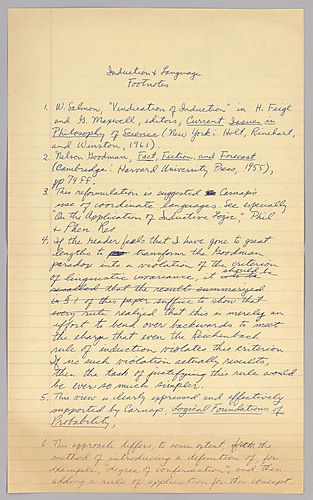 Induction & Language
Footnotes
1. W. Salmon, "Vindication of Induction" in H. Feigl
and G. Maxwell, editors, Current Issues in
Philosophy of Science (New York: Holt, Rinehart,
and Winston, 1961).
2. Nelson Goodman, Fact, Fiction, and Forecast
(Cambridge: Harvard University Press, 1955),
pp 74ff.
3. This reformulation is suggested Carnap's
use of coordinate languages. See especially
"On the Application of Inductive Logic," Phil
& Phen Res
4. If the reader feels that I have gone to great
lengths to transform the Goodman
paradox into a violation of the criterion
of linguistic invariance, it should be
that the results summarized
in § 1 of this paper suffice to show that
every rule realized that this is merely an
effort to bend over backwards to meet
the charge that even the Reichenbach
rule of induction violates this criterion
If no such violation actually results,
then the task of justifying this rule would
be ever so much simpler.
5. This view is clearly expressed and effectively
supported by Carnap, Logical Foundations of
Probability,
6. This approach differs, to some extent, from the
method of introducing a definition of, for
example, "degree of confirmation", and then
adding a rule of application for this concept